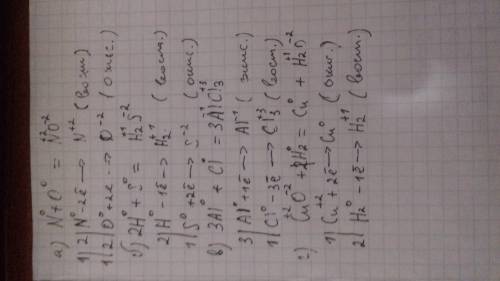 а) N⁰ + O⁰ = N⁺²O⁻²
1|2|N⁰ - 2ē → N⁺² (вост.)
1|2|O⁰ + 2ē → O⁻² (окис.)
б) 2H⁰ + S⁰ = H₂⁺¹S⁻²
2|H⁰ - 1ē → H₂⁺¹ (вост.)
1|S⁰ + 2ē → S⁻² (окис.)
в) 3Al⁰ + Cl⁰ = 3Al⁻¹Cl₃⁺³
3|Al⁰ + 1ē → Al⁻¹ (окис.)
1|Cl⁰ - 3ē → Cl₃⁺³ (вост.)
г) Cu⁺²O⁻² + H₂⁰ = Cu⁰ + H₂⁺¹O⁻²
1|Cu⁺² + 2ē → Cu⁰ (окис.)
2|H₂⁰ - 1ē → H₂⁺¹ (вост.)